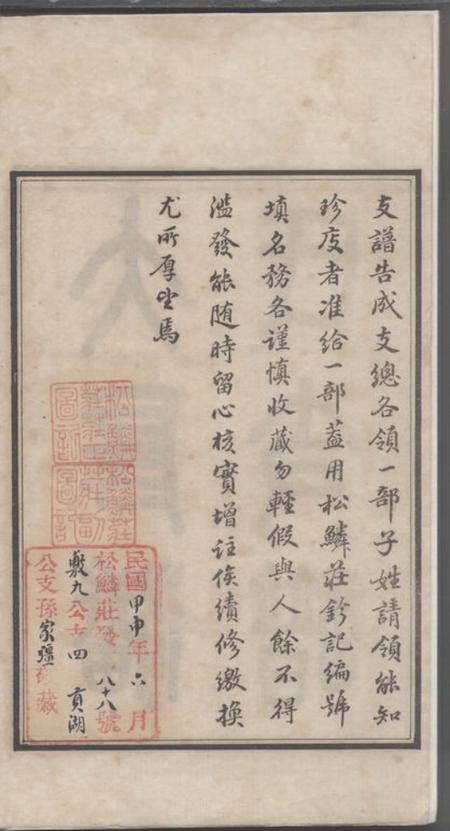 支譜告成支總各領一部子姓請領能知
珍庋者准給一部蓋用松鱗莊鈐記編號
填名務各謹慎收藏勿輕假與人餘不得
濫發能随時留心核實增註俟續修繳換
尤所厚望焉
民國甲申年六月
松鱗莊 八十八號
敷九公支四 貢湖
公支孫家彊 藏